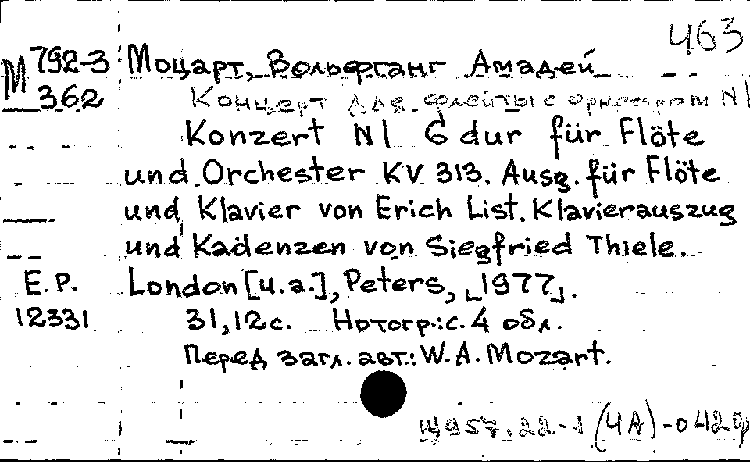 463
М 792-3 Моцарт, Вольфганг Амадей
362 Концерт для флейты с оркестром N1
Konzert N1 G dur für Flöte
und Orchester KV 313. Ausg. für Flöte
und Klavier von Erich List. Klavierauszug
und Kadenzen von Siegfried Thiele.
E.P. London [u.a.], Peters, [1977].
12331 31,12с. Нотогр.: с. 4 обл.
Перед загл. авт.: W.A. Mozart.
Щ957.22-1 (4А)-042ф